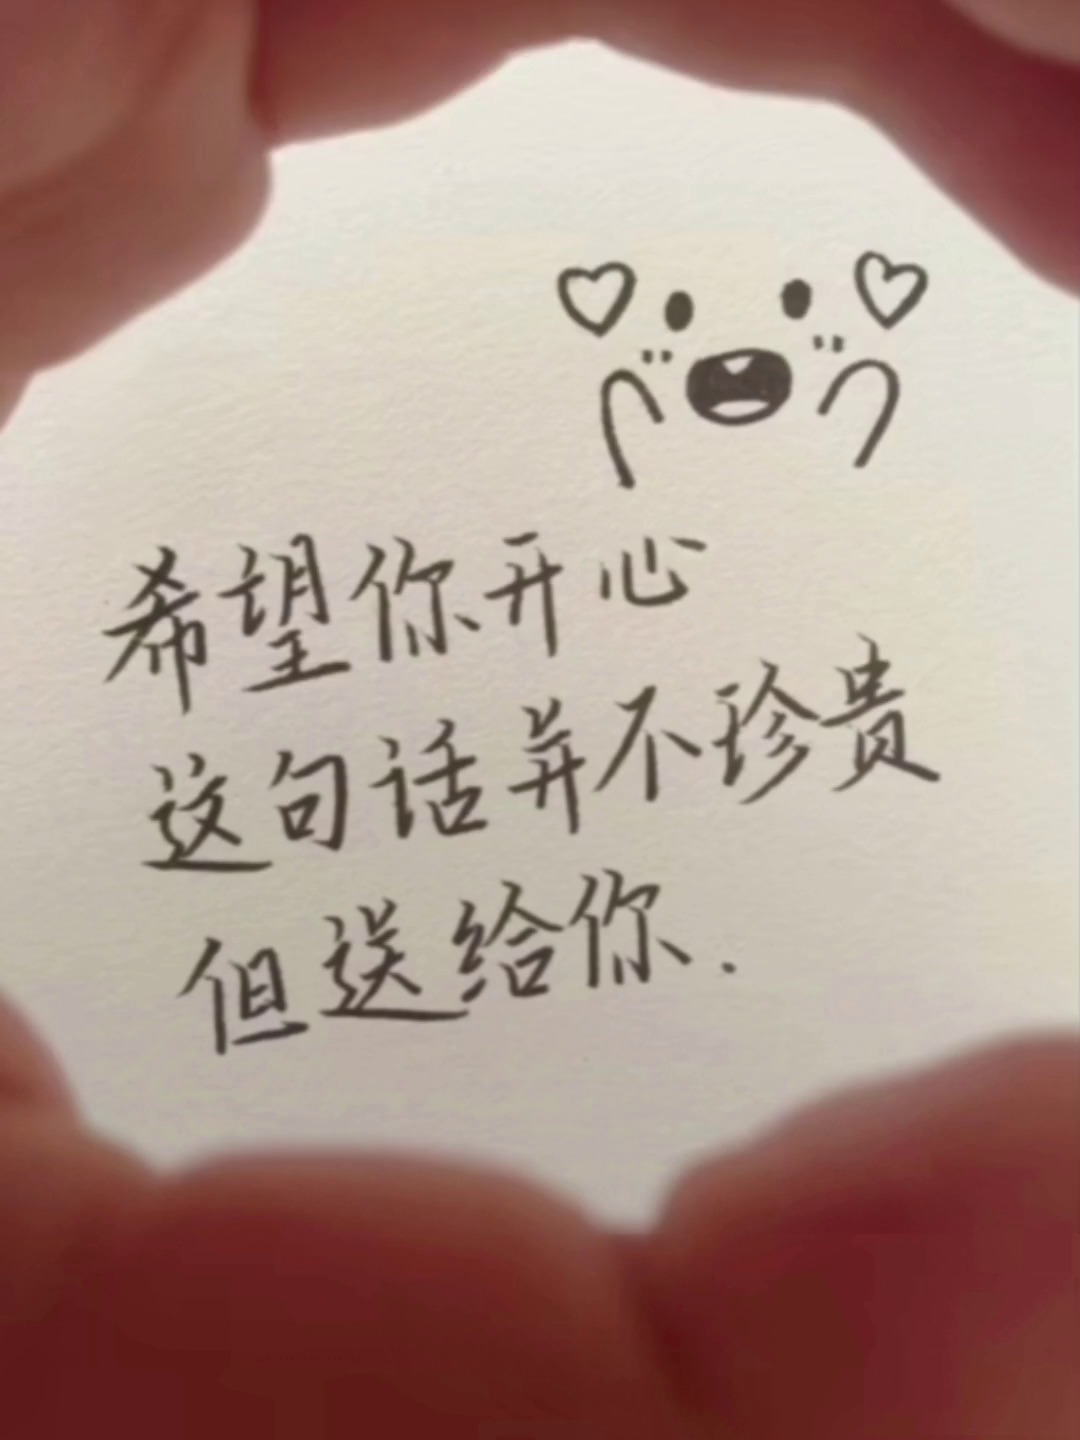 希望你开心
这句话并不珍贵
但送给你.